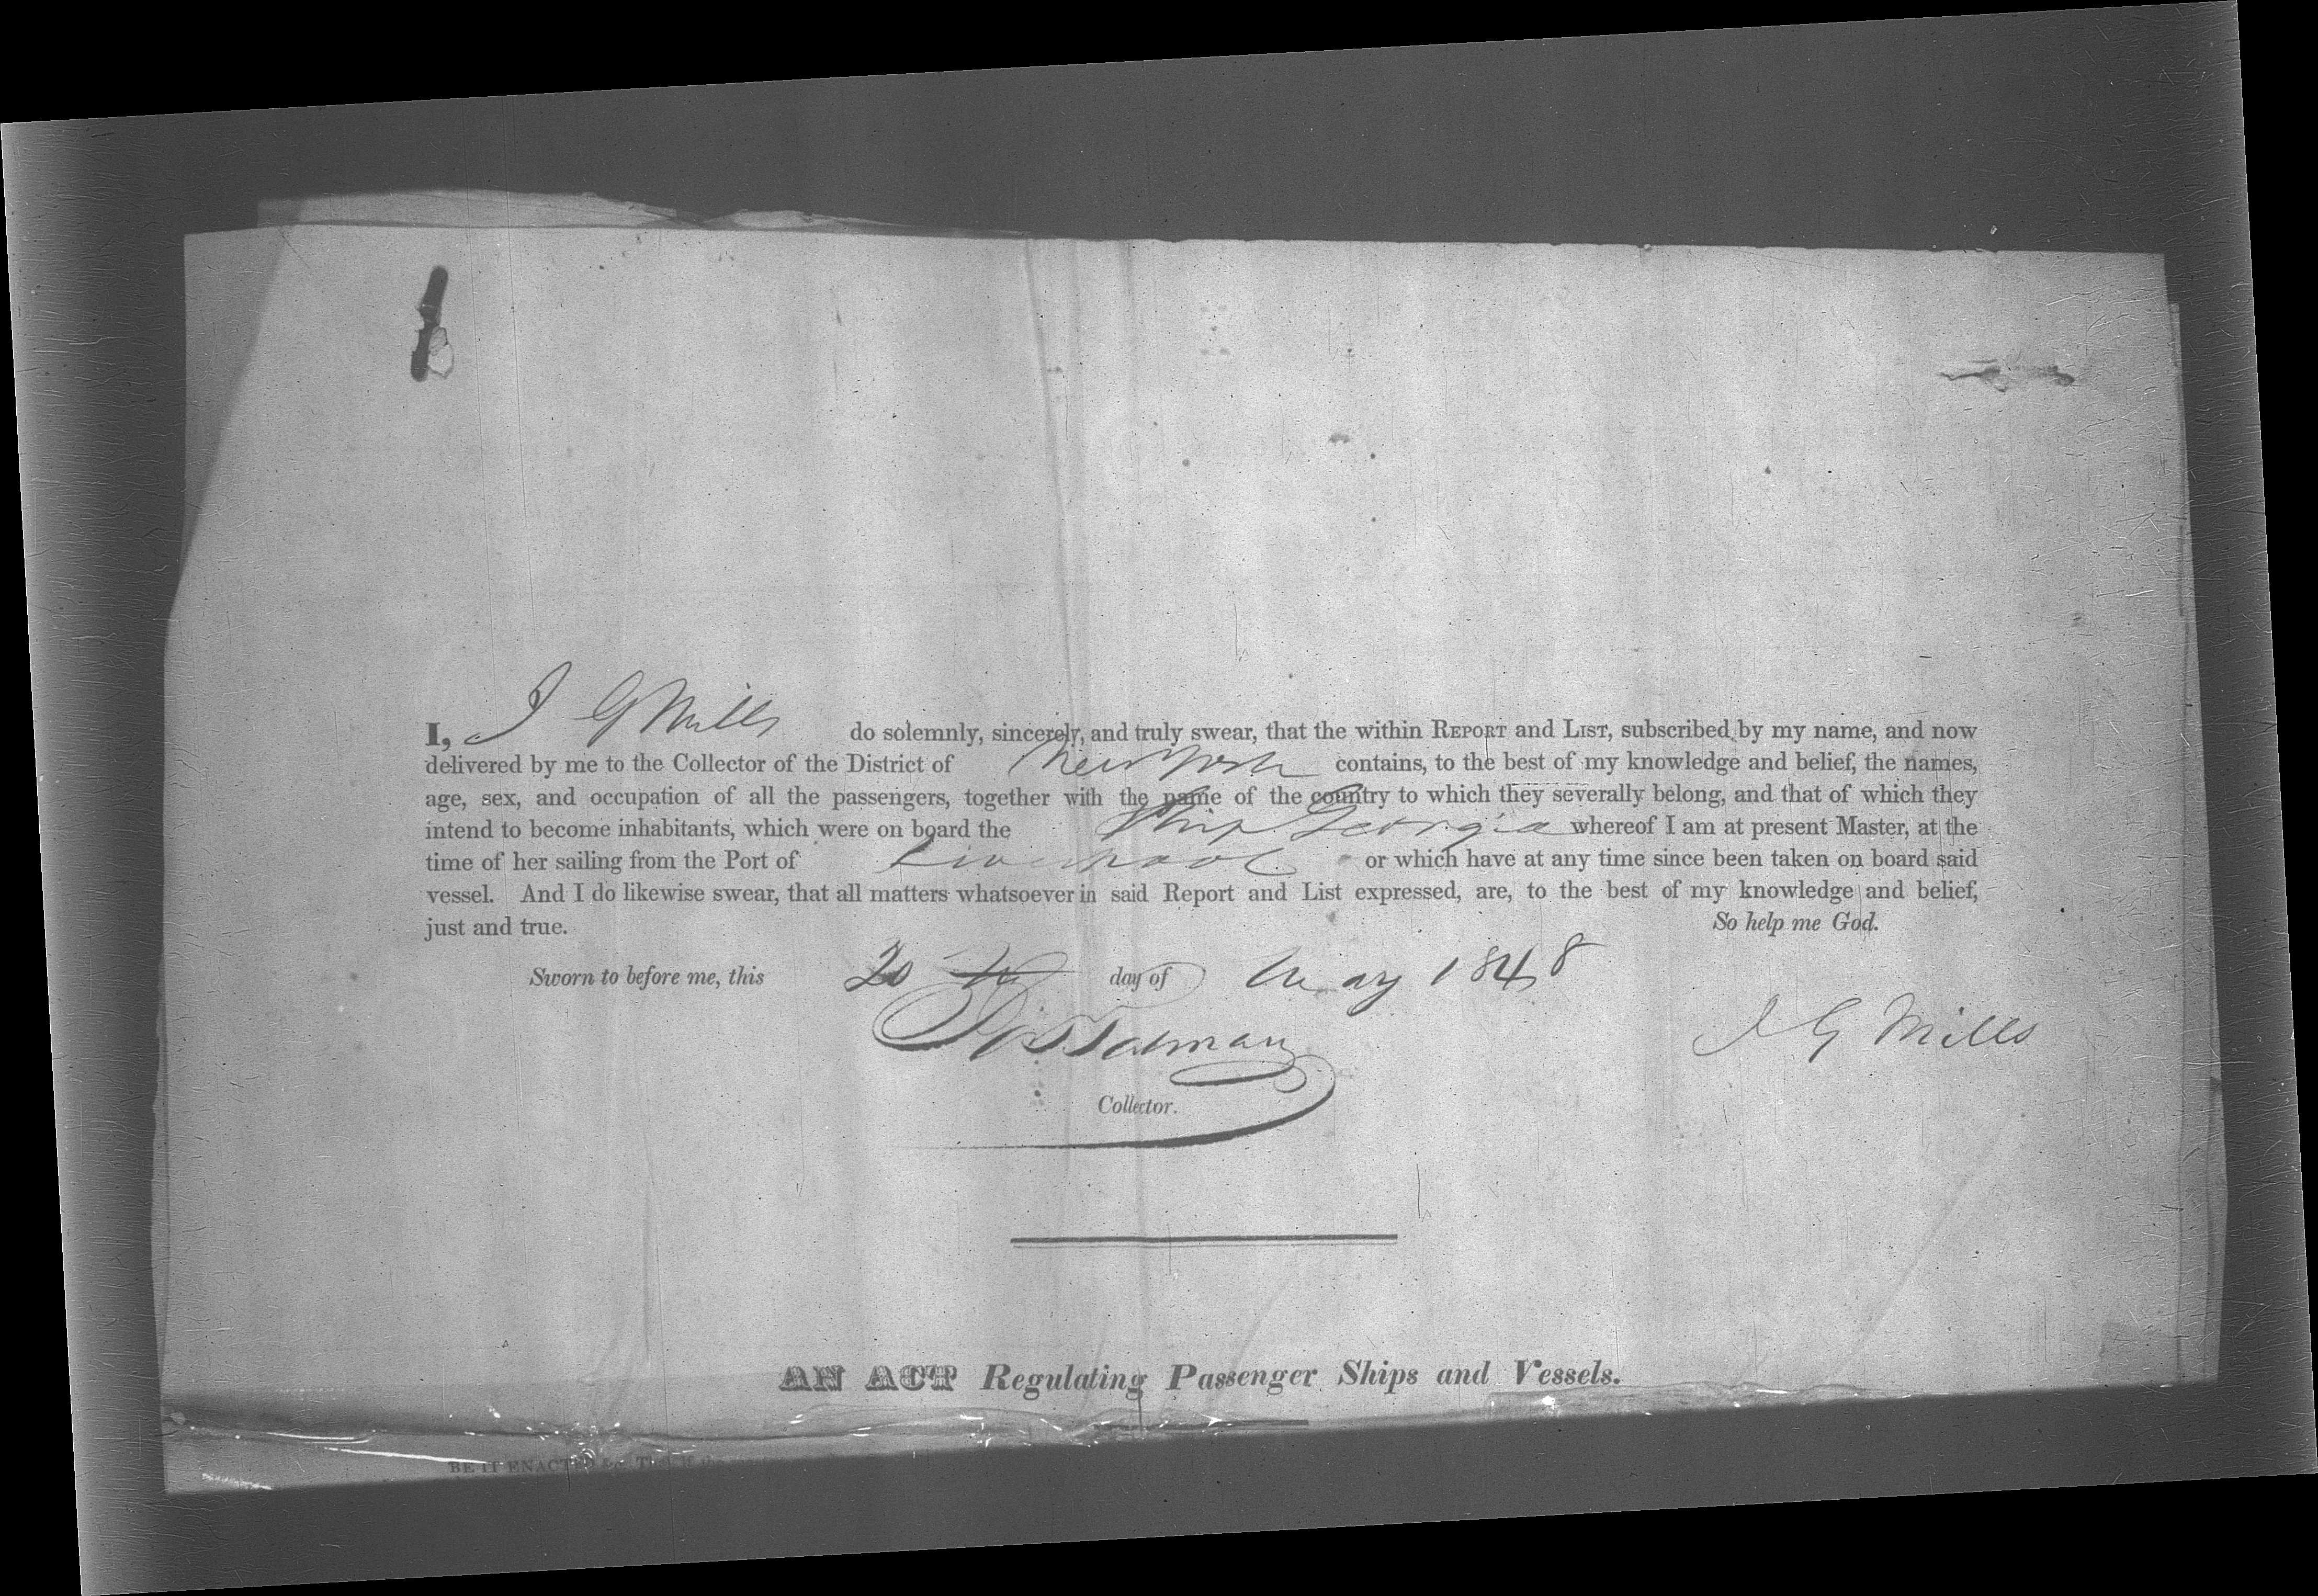 I, J G Mills do solemnly, sincerely, and truly swear, that the within REPORT and LIST, subscribed by my name, and now
delivered by me to the Collector of the District of New York contains, to the best of my knowledge and belief, the names,
age, sex, and occupation of all the passengers, together with the name of the country to which they severally belong, and that of which they
intend to become inhabitants, which were on board the Ship Georgia whereof I am at present Master, at the
time of her sailing from the Port of Liverpool or which have at any time since been taken on board said
vessel. And I do likewise swear, that all matters whatsoever in said Report and List expressed, are, to the best of my knowledge and belief,
just and true. So help me God.
Sworn to before me, this 20 th day of May 1848
J G Mills
Collector.
AN ACT Regulating Passenger Ships and Vessels.
BE IT ENACTED &c. That if the